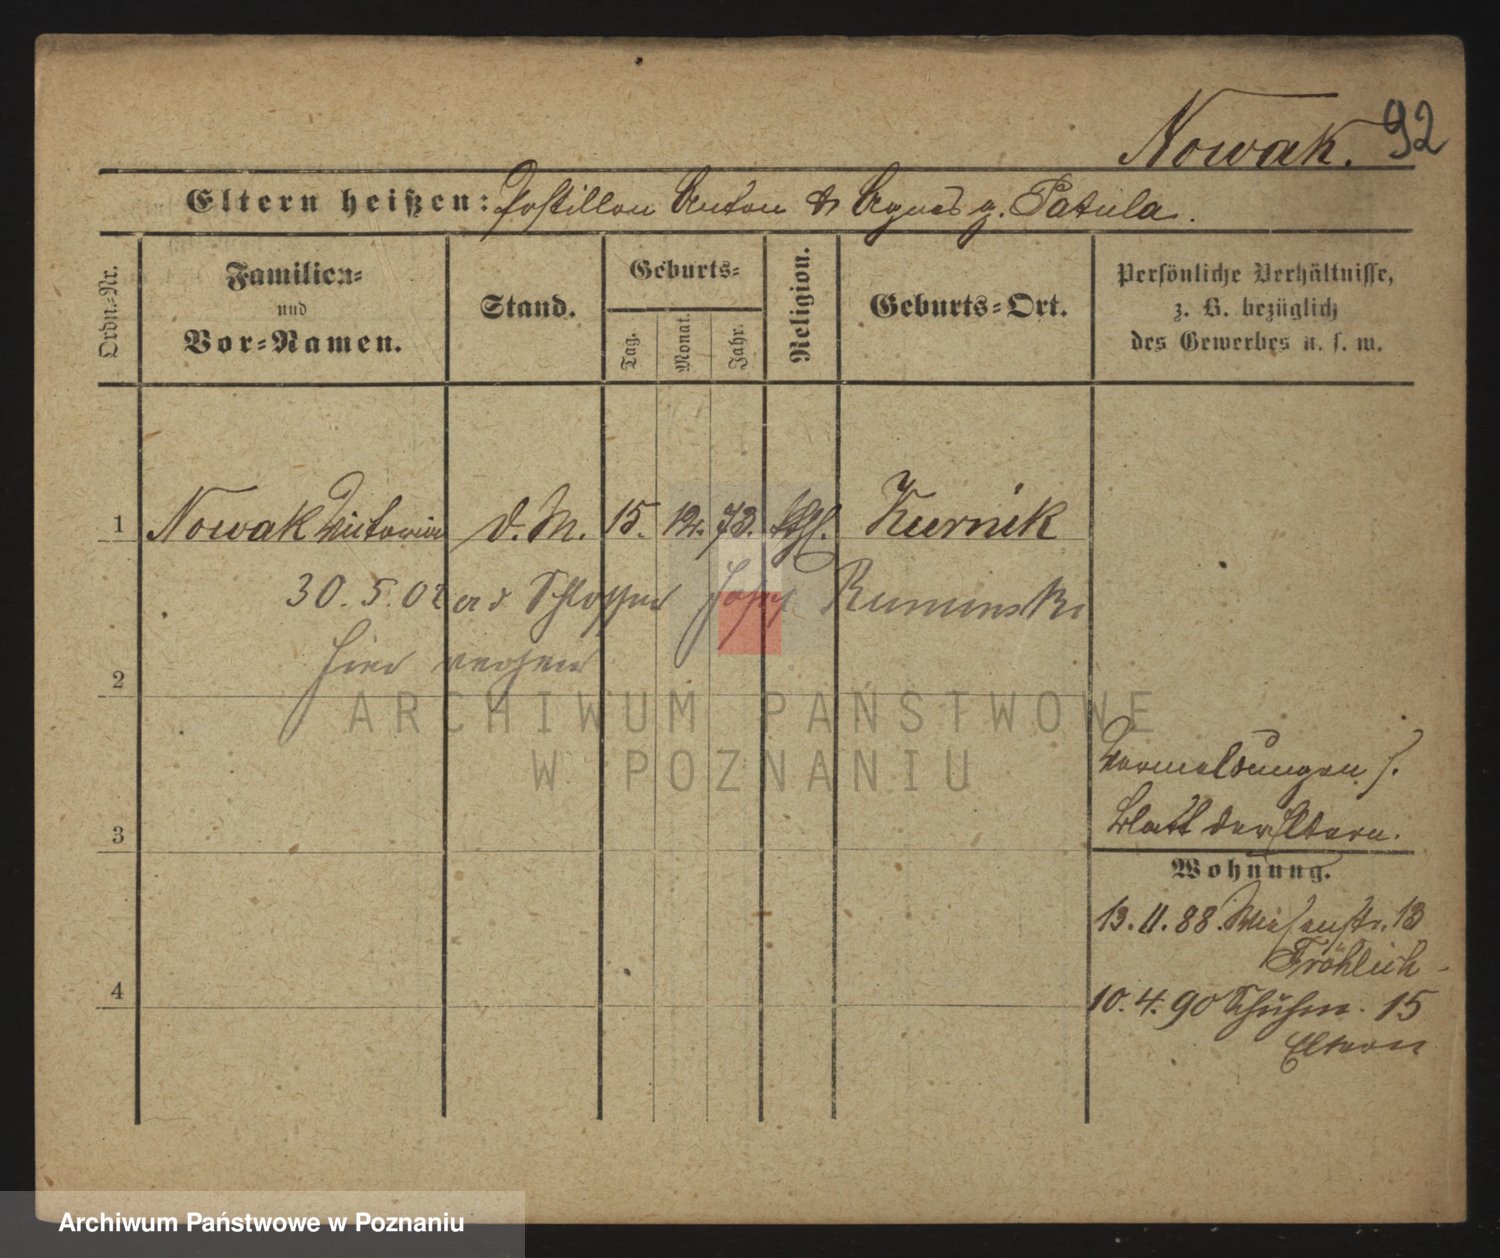 Nowak. 92
Eltern heißen: Postillon Anton & Agnes g. Patula.
Ordn.-Nr.
Familien-
und
Vor-Namen.
Stand.
Geburts-
Tag.
Monat.
Jahr.
Religion.
Geburts-Ort.
Persönliche Verhältnisse,
z. B. bezüglich
des Gewerbes u. s. w.
1 Nowak Victoria d. M. 15. 12. 73. kath. Kurnik
30.5.02 Schlosser Josef Ruminski
hier
2
ARCHIWUM PAŃSTWOWE
W POZNANIU
Vormeldungen s.
Blatt der Eltern.
3
Wohnung.
13.11.88. Wiesenstr. 13
Fröhlich
4
10.4.90 Schuhm. 15
Eltern
Archiwum Państwowe w Poznaniu